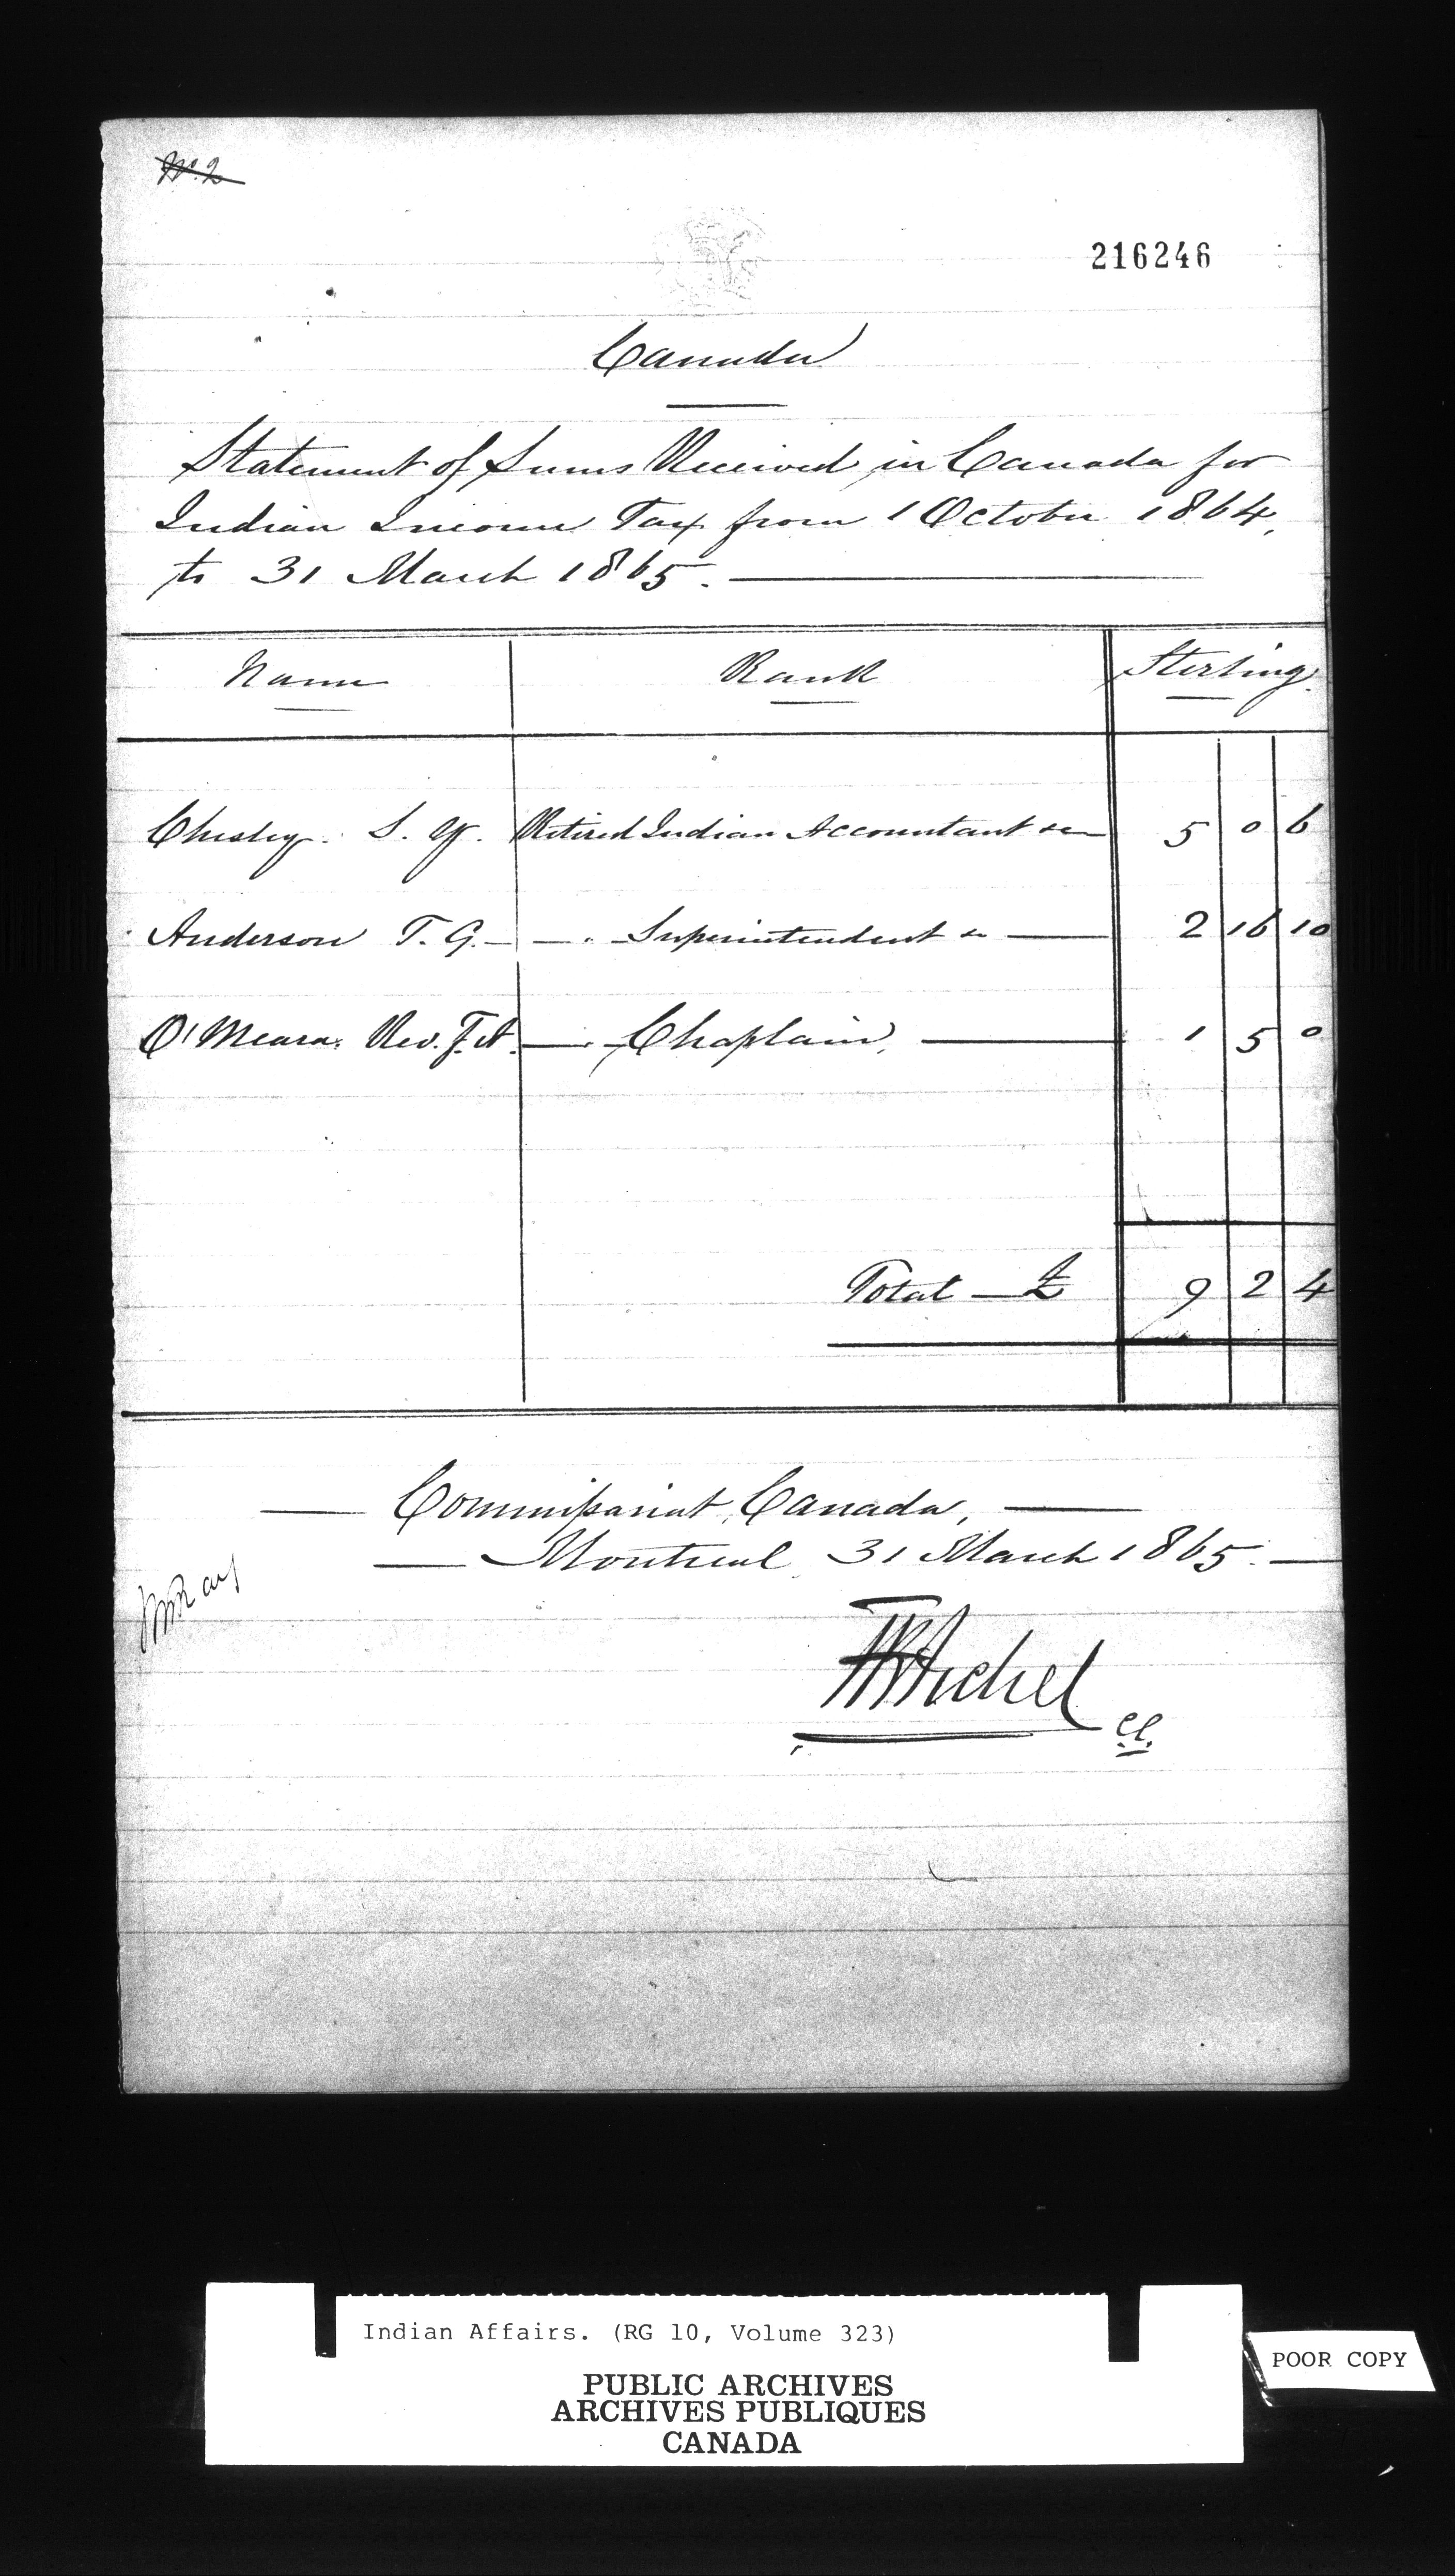 No. 2
216246
Canada
Statement of Sums Received in Canada for
Indian Income Tax from 1 October 1864,
to 31 March 1865.
Name Rank Sterling
Chesley. S. Y. Retired Indian Accountant &c 5 0 6
Anderson T. G. — " Superintendent &c 2 16 10
O'Meara. Rev. F. A. — " Chaplain, 1 5 0
Total — £ 9 2 4
Commissariat, Canada,
Montreal, 31 March 1865.
Indian Affairs. (RG 10, Volume 323)
PUBLIC ARCHIVES
ARCHIVES PUBLIQUES
CANADA
POOR COPY